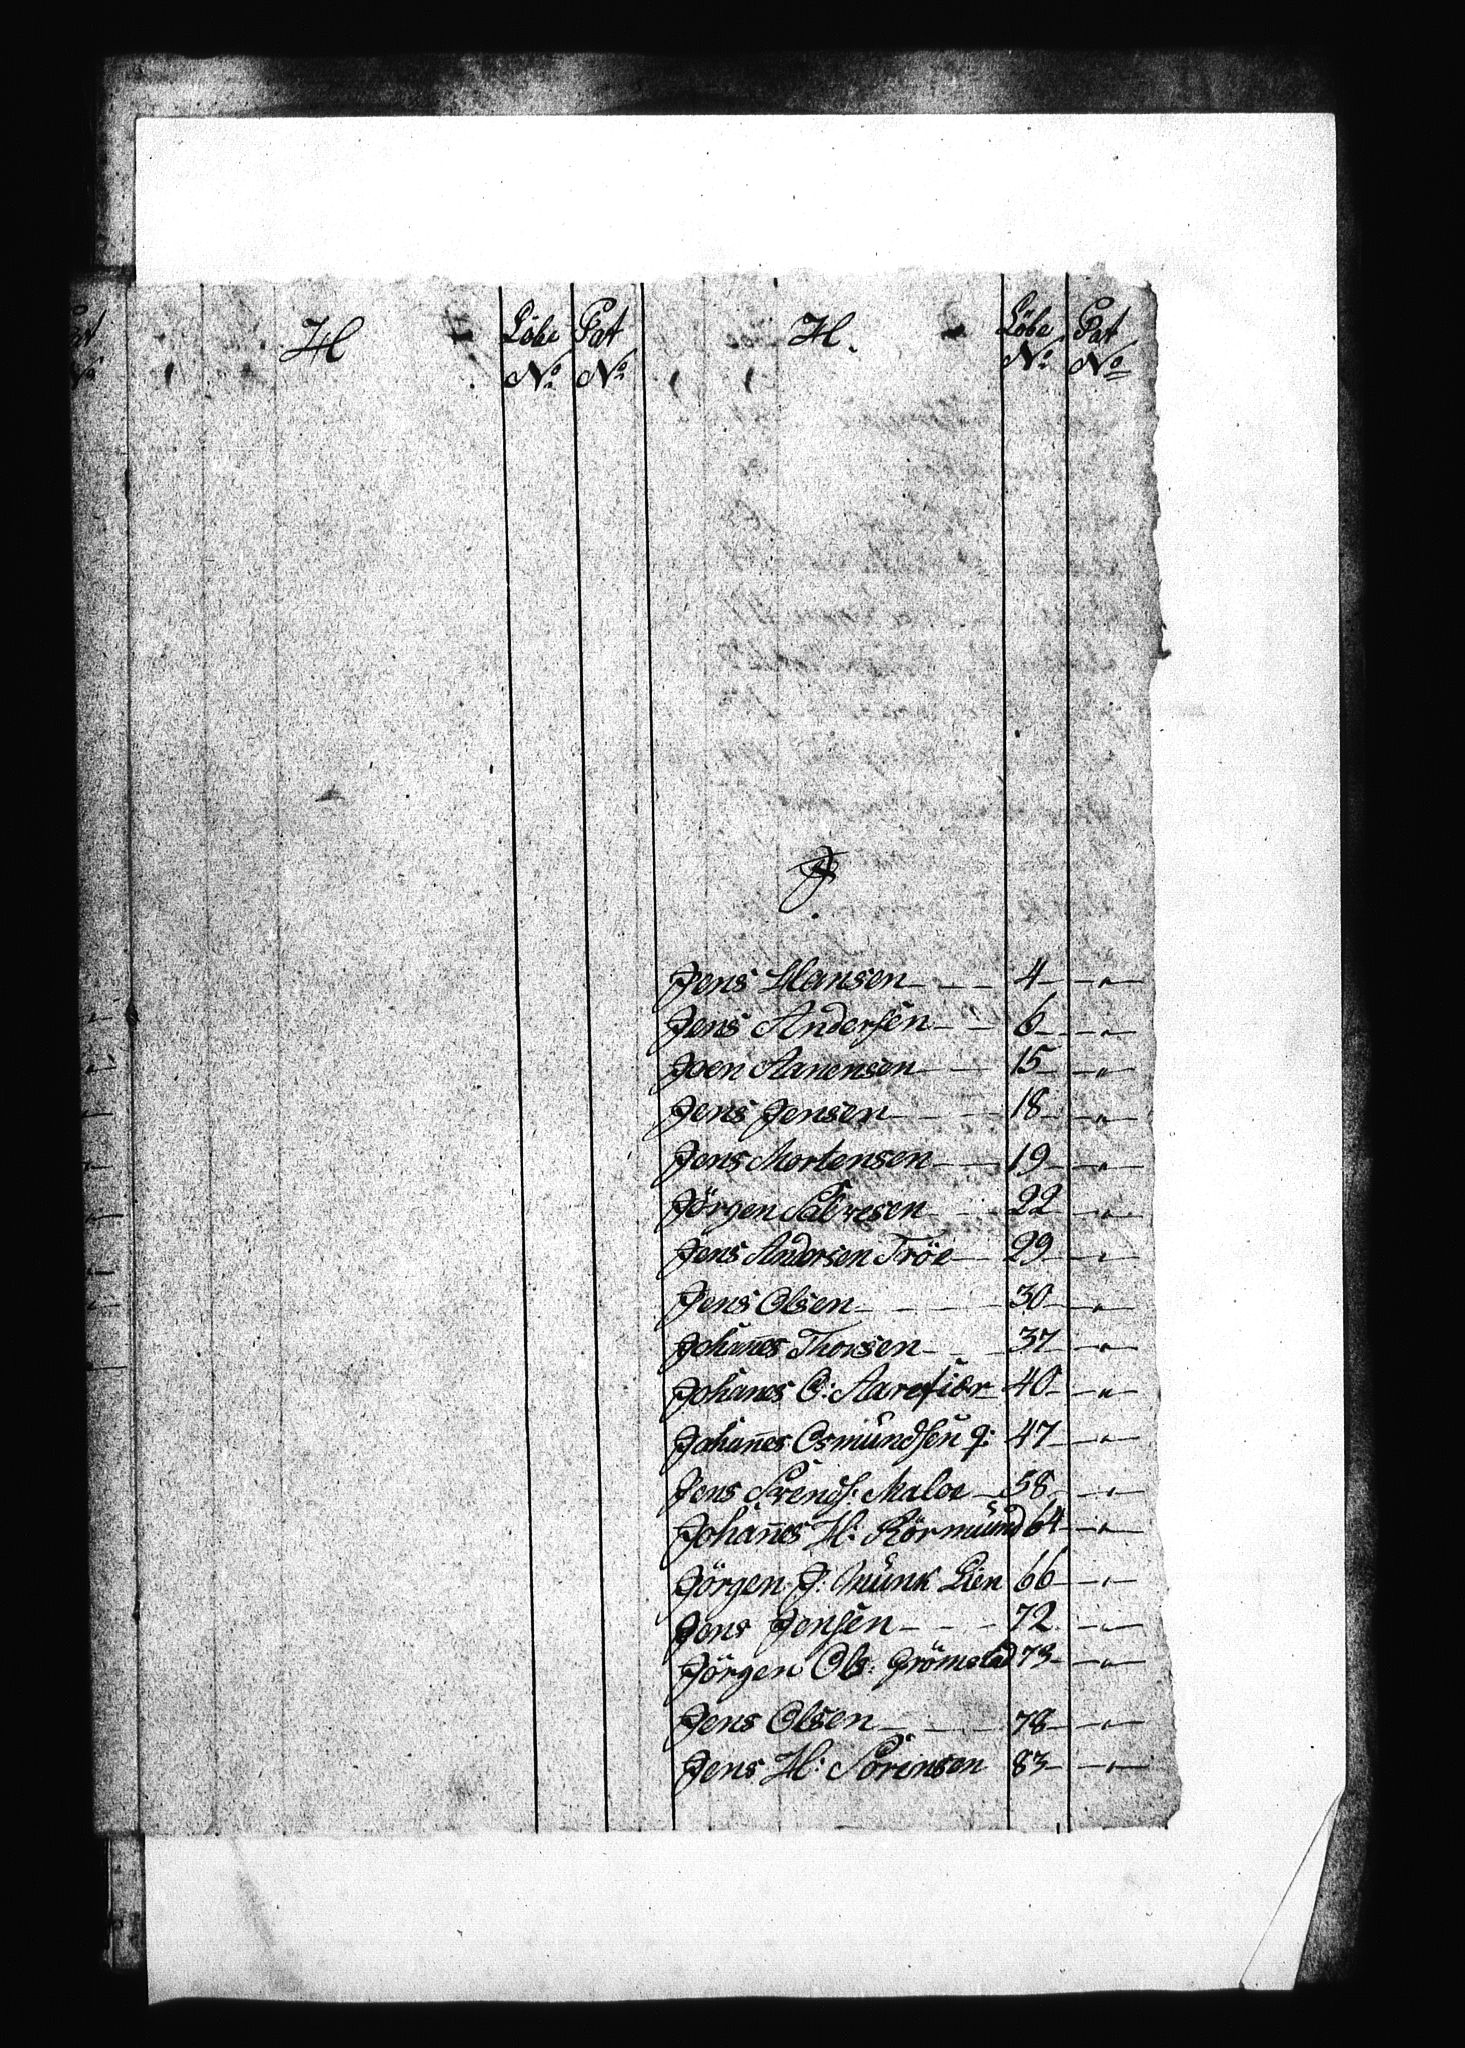 H
Löbe Pat
No No
H.
Löbe Pat
No No
J
Jens Hansen - - - 4 - " -
Jens Andersen - - 6 - " -
Joen Aanensen - - 15 - " -
Jens Jensen - - - 18 - " -
Jens Mortensen - - 19 - " -
Jörgen Salvesen - - 22 - " -
Jens Andersen Tröe - 29 - " -
Jens Olsen - - - - 30 - " -
Johan̄es Thorsen - - 37 - " -
Johanes O: Aarefiær - 40 - " -
Johan̄es Osmundsen q: 47 - " -
Jens Svends: Maloe - 58 - " -
Johan̄es H: Körmund 64 - " -
Jörgen J: Munk Lien 66 - " -
Jens Jensen - - - 72 - " -
Jörgen Ols: Grömstad 73 - " -
Jens Olsen - - - 78 - " -
Jens H: Sörensen 83 - " -